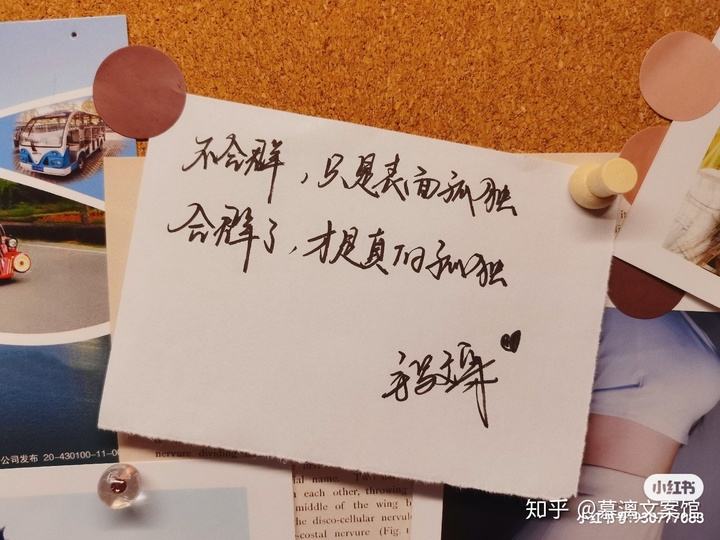 不合群，只是表面孤独
合群了，才是真的孤独
公司发布 20-430100-11-00
nervure dividing
each other, throwing
middle of the wing b
the disco-cellular nervul
-costal nervure (Fig.
小红书
知乎 @暮漓文案馆
小红书号:930777083